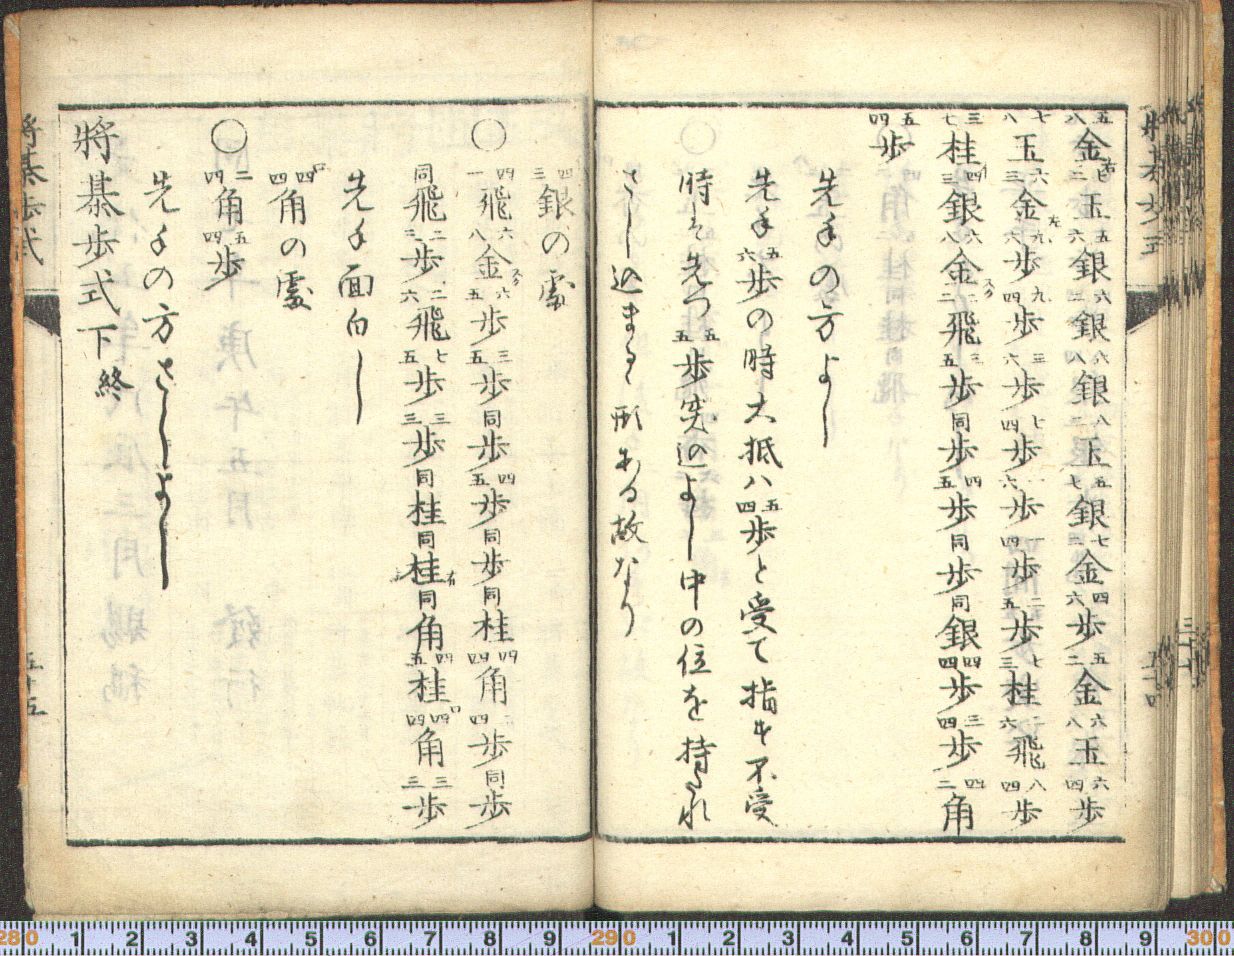 五八金右七二玉五六銀六三銀六八銀八二玉五七銀七二金四六歩五二金六八玉六四歩
七八玉六三金左九六歩九四歩三六歩七四歩一六歩一四歩二五歩七三桂二六飛八四歩
三七桂四三銀六八金スク二二飛三五歩同歩四五歩同歩同銀四四歩三四歩四二角
五四歩
先手の方よし
先手五六歩の時大抵ハ五四歩と受て指す不受
時は先つ五五歩突迄よし中の位を持たれ
さし込まるゝ形ある故なり
四三銀の處
○四一飛六八金スク六五歩三五歩同歩四五歩同歩同桂四四角二四歩同歩
同飛二三歩二六飛七五歩三三歩同桂同桂右同角四五桂四四角三三歩
先手面白し
四四角の處
○二四角五四歩
先手の方さしよし
將棊歩式下終
將棊歩式
五十五